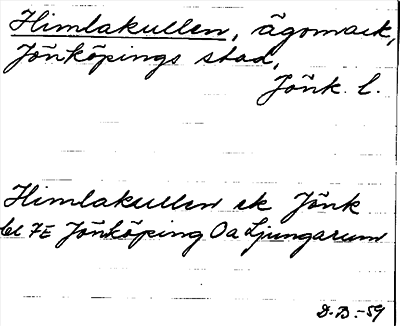 Himlakullen, ägomark,
Jönköpings stad,
Jönk. l.
Himlakullen ek Jönk
bl 7E Jönköping Oa Ljungarum
D.B.-59